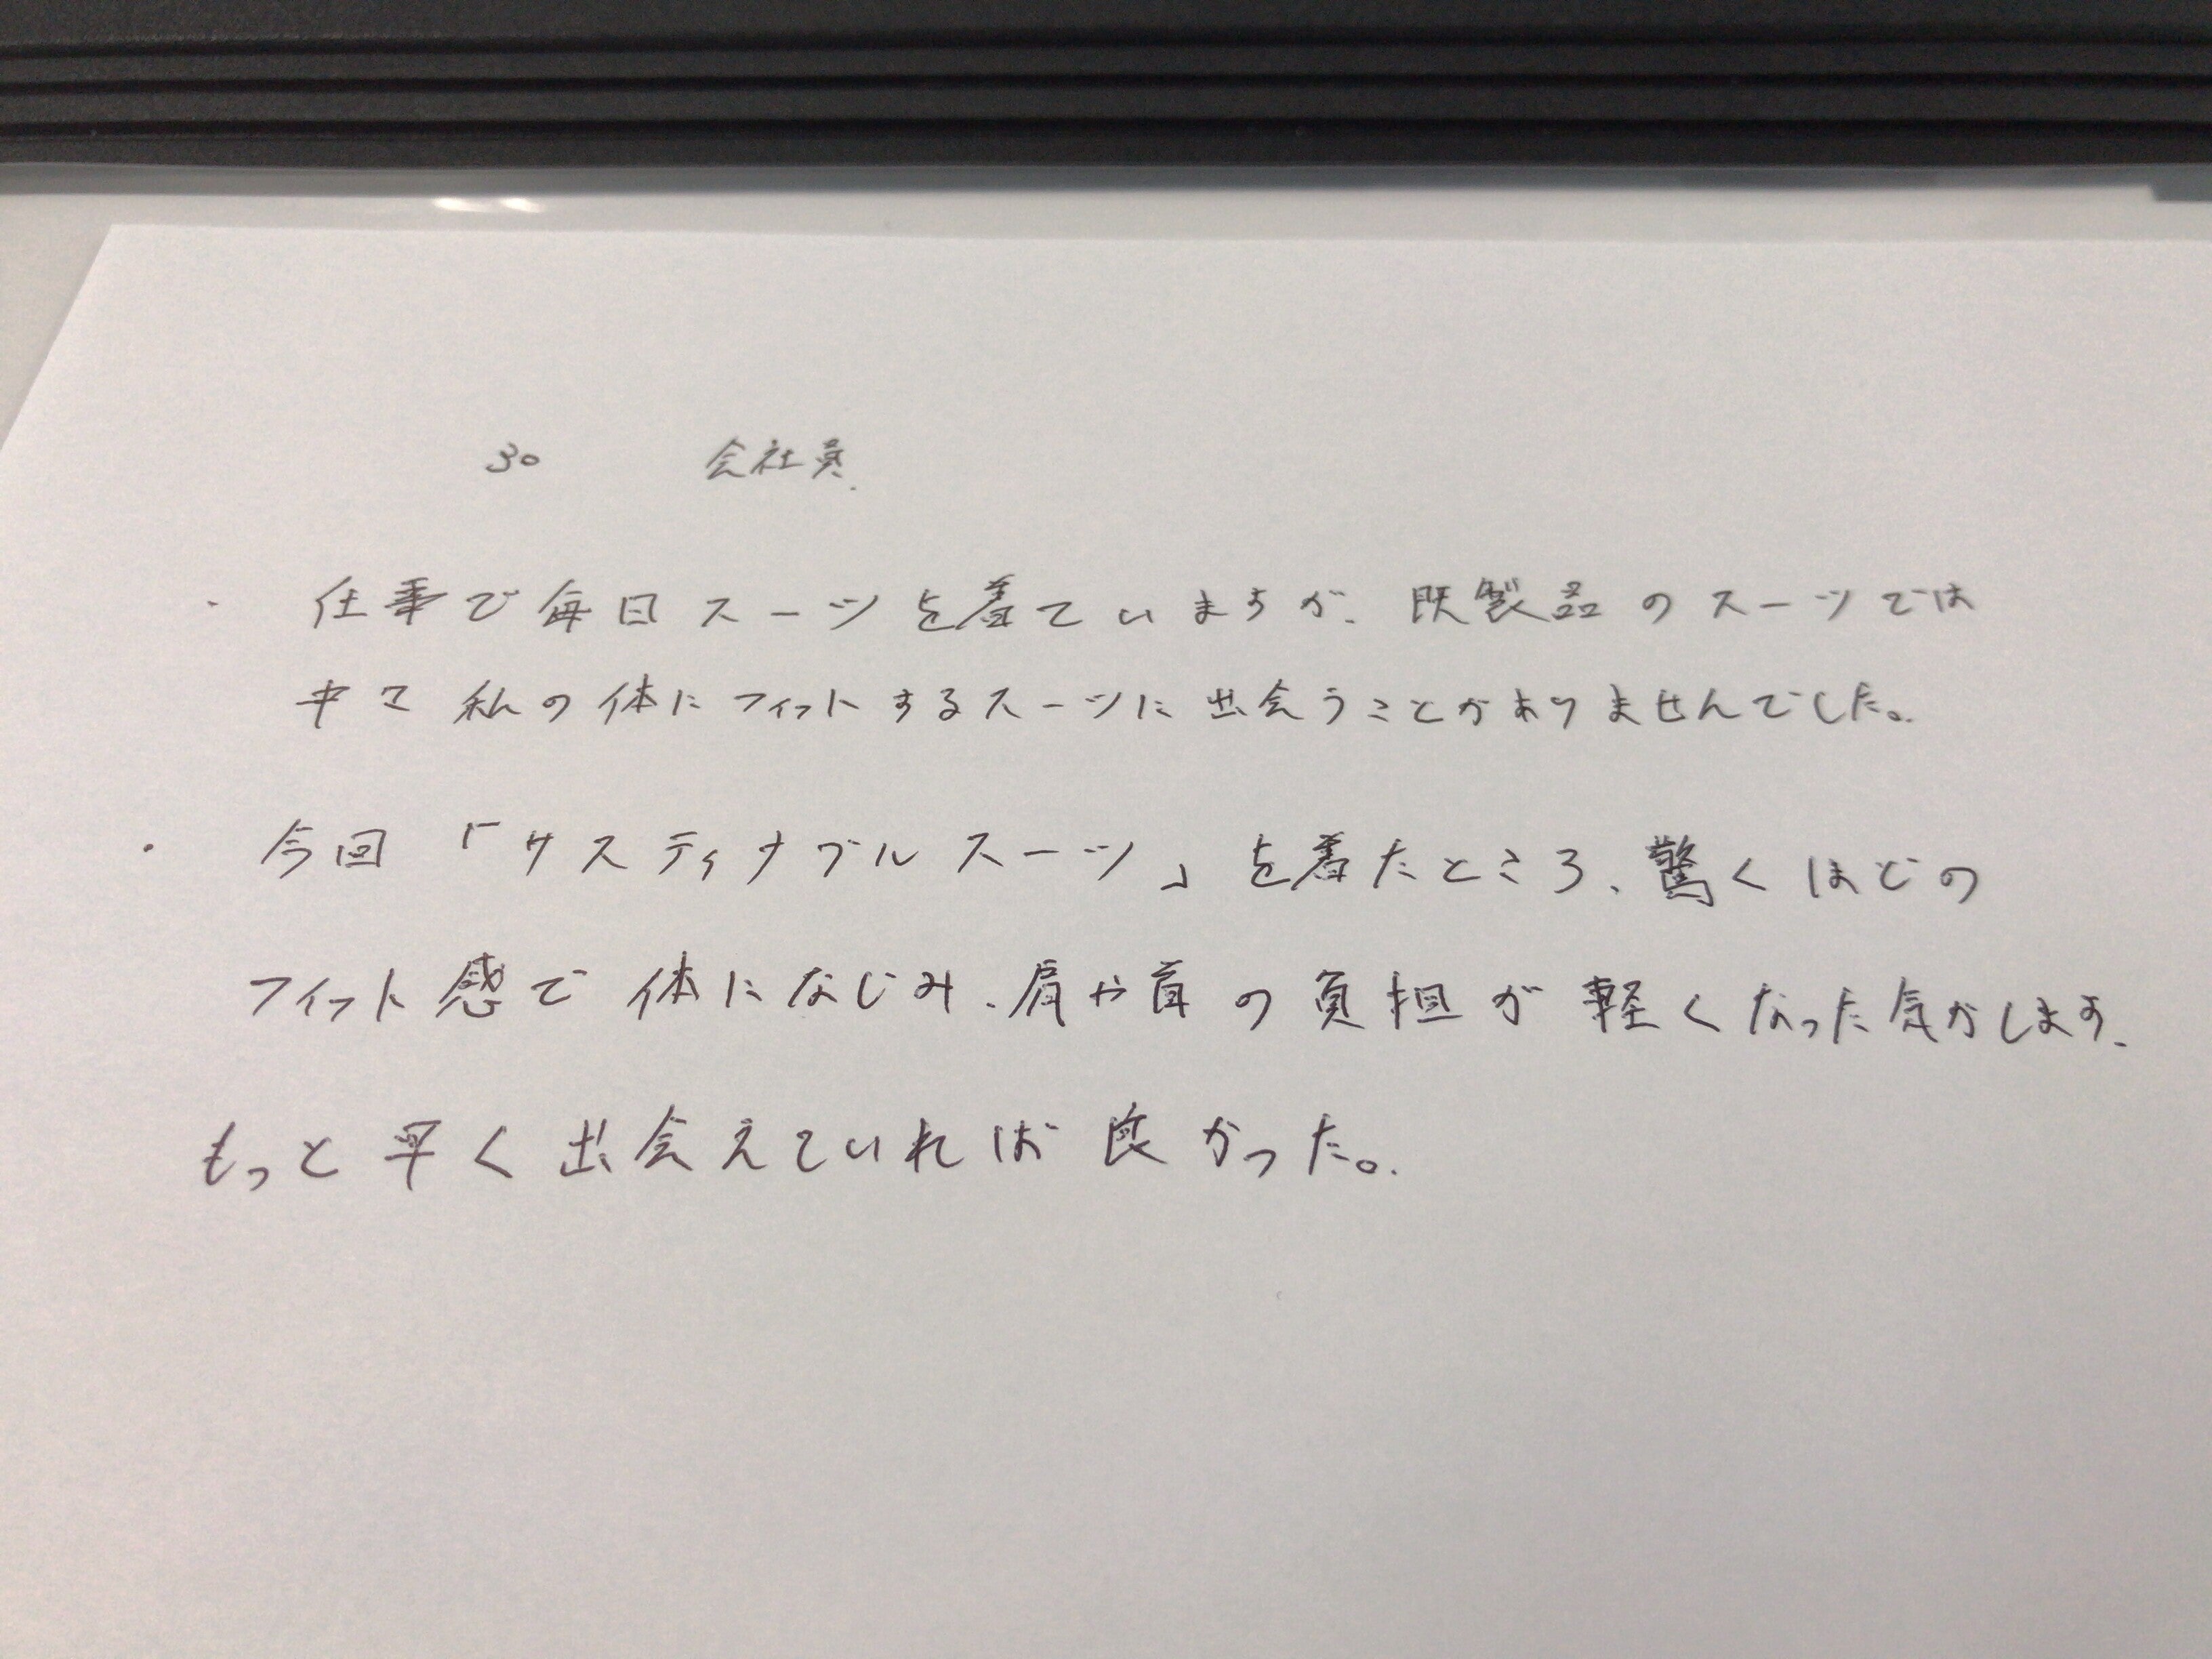 30 会社員
・ 仕事で毎日スーツを着ていますが、既製品のスーツでは
中々私の体にフィットするスーツに出会うことがありませんでした。
・ 今回「サスティナブルスーツ」を着たところ、驚くほどの
フィット感で体になじみ、肩や首の負担が軽くなった気がします、
もっと早く出会えていれば良かった。